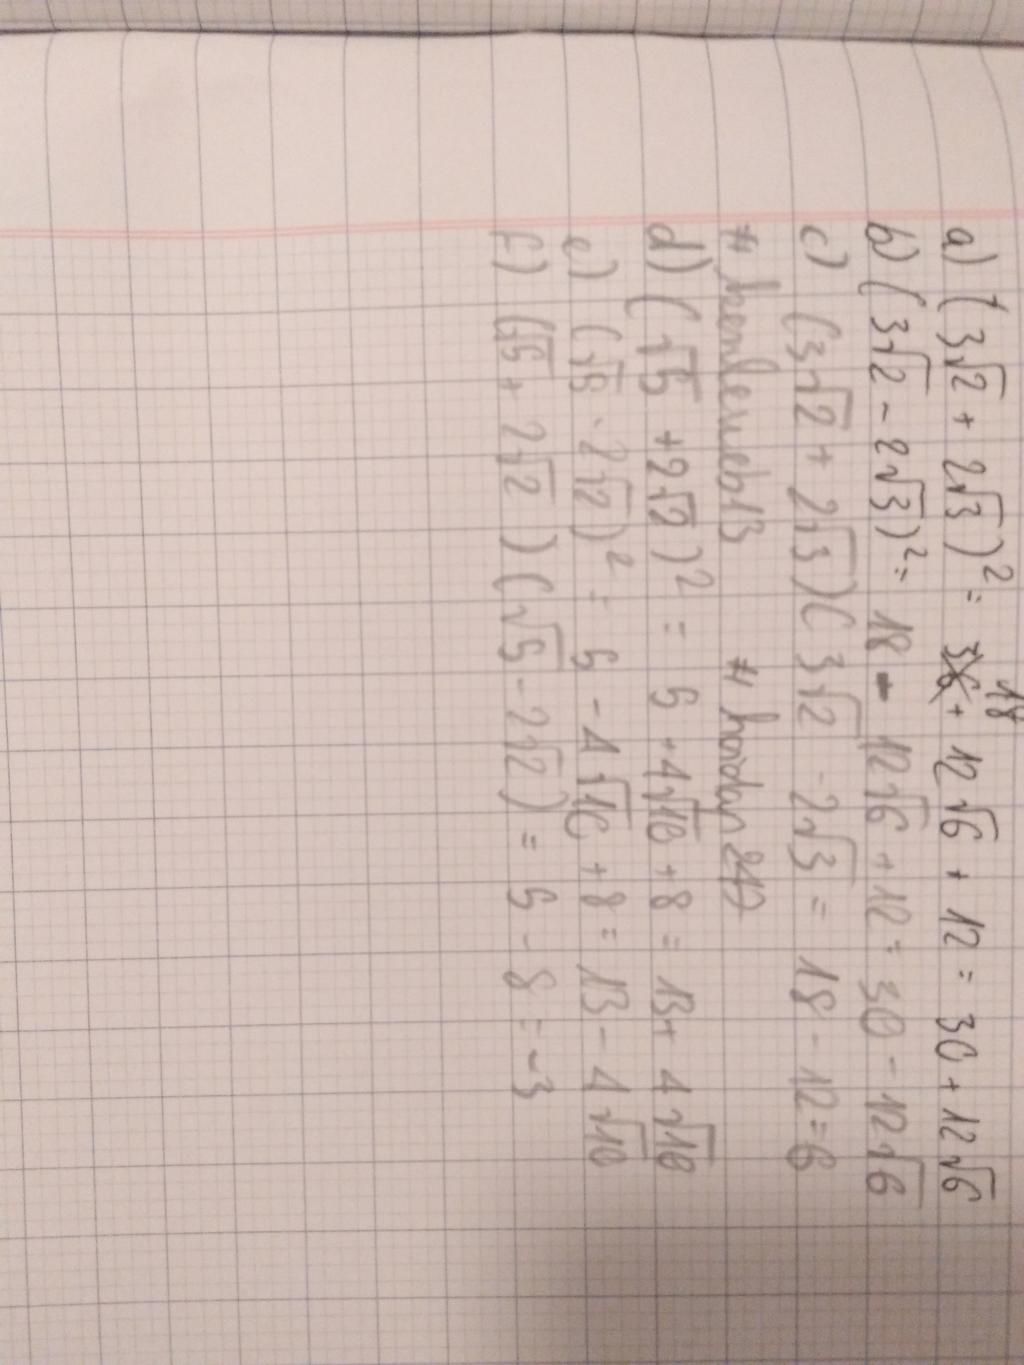 a) (3√2 + 2√3)² = 18 + 12√6 + 12 = 30 + 12√6
b) (3√2 - 2√3)² = 18 - 12√6 + 12 = 30 - 12√6
c) (3√2 + 2√3)(3√2 - 2√3 = 18 - 12 = 6
d) (√5 + 2√2)² = 5 + 4√10 + 8 = 13 + 4√10
e) (√5 - 2√2)² = 5 - 4√10 + 8 = 13 - 4√10
f) (√5 + 2√2)(√5 - 2√2) = 5 - 8 = -3